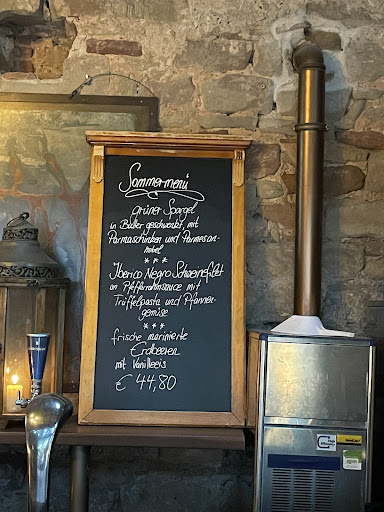 Sommermenü
grüner Spargel
in Butter geschwenkt, mit
Parmaschinken und Parmesan-
hobel
***
Iberico Negro Schweinefilet
an Pfefferrahmsauce mit
Trüffelpasta und Pfannen-
gemüse
***
frische marinierte
Erdbeeren
mit Vanilleeis
€ 44,80